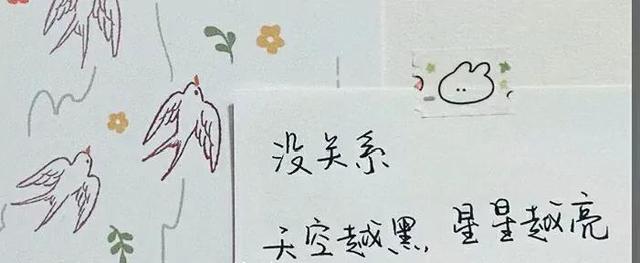 没关系
天空越黑,星星越亮